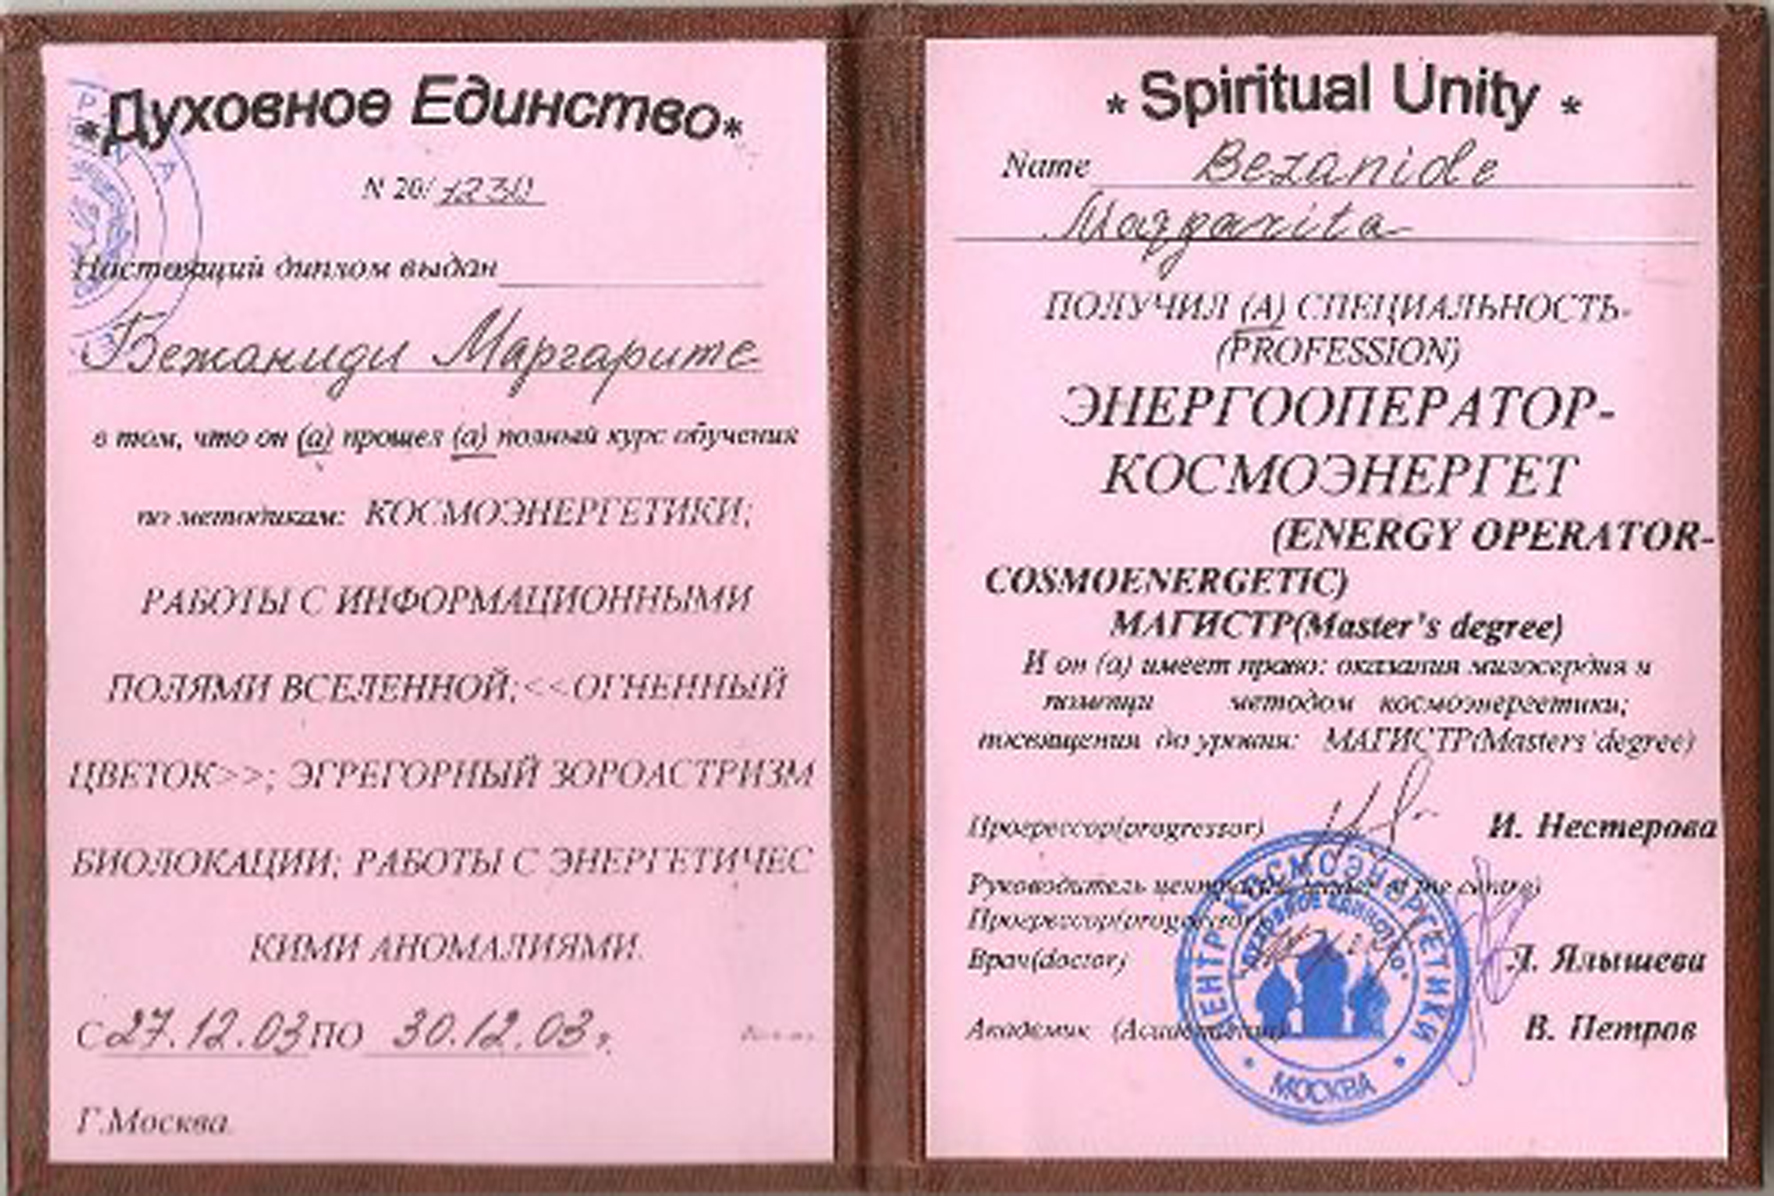 *Духовное Единство*
N 20/
Настоящий диплом выдан
Бежаниди Маргарите
в том, что он (а) прошел (а) полный курс обучения
по методикам: КОСМОЭНЕРГЕТИКИ;
РАБОТЫ С ИНФОРМАЦИОННЫМИ
ПОЛЯМИ ВСЕЛЕННОЙ;<<ОГНЕННЫЙ
ЦВЕТОК>>; ЭГРЕГОРНЫЙ ЗОРОАСТРИЗМ
БИОЛОКАЦИИ; РАБОТЫ С ЭНЕРГЕТИЧЕС
КИМИ АНОМАЛИЯМИ.
С 27.12.03 ПО 30.12.03 г.
Г.Москва.
* Spiritual Unity *
Name Bezanide
Margarita
ПОЛУЧИЛ (А) СПЕЦИАЛЬНОСТЬ-
(PROFESSION)
ЭНЕРГООПЕРАТОР-
КОСМОЭНЕРГЕТ
(ENERGY OPERATOR-
COSMOENERGETIC)
МАГИСТР(Master's degree)
И он (а) имеет право: оказания милосердия и
помощи методом космоэнергетики;
посвящения до уровня: МАГИСТР(Masters degree)
Прогрессор(progressor) И. Нестерова
Руководитель центра the centre)
Прогрессор
Врач(doctor) Л. Ялышева
Академик В. Петров
ЦЕНТР КОСМОЭНЕРГЕТИКИ
ДУХОВНОЕ ЕДИНСТВО
МОСКВА